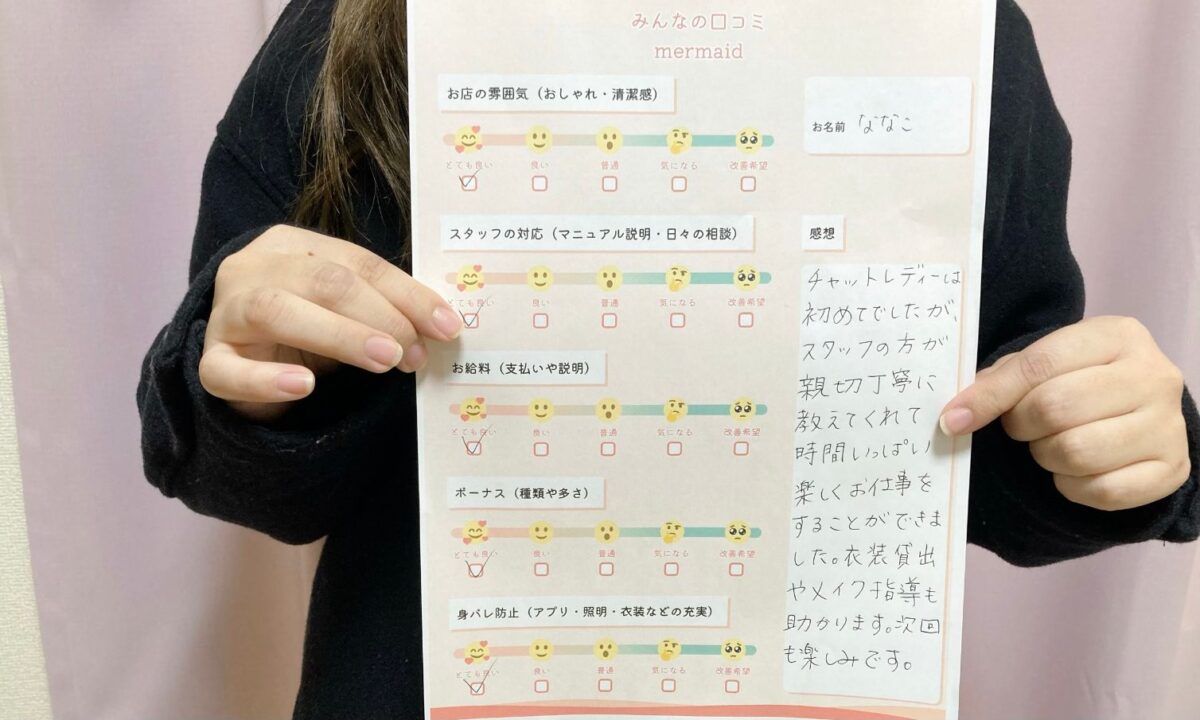 みんなの口コミ
mermaid
お店の雰囲気（おしゃれ・清潔感）
とても良い 良い 普通 気になる 改善希望
スタッフの対応（マニュアル説明・日々の相談）
とても良い 良い 普通 気になる 改善希望
お給料（支払いや説明）
とても良い 良い 普通 気になる 改善希望
ボーナス（種類や多さ）
とても良い 良い 普通 気になる 改善希望
身バレ防止（アプリ・照明・衣装などの充実）
とても良い 良い 普通 気になる 改善希望
お名前 ななこ
感想
チャットレディーは
初めてでしたが、
スタッフの方が
親切丁寧に
教えてくれて
時間いっぱい
楽しくお仕事を
することができま
した。衣装貸出
やメイク指導も
助かります。次回
も楽しみです。